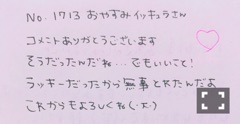 No. 1713 おやすみイッキュラさん
コメントありがとうございます
そうだったんだね…でもいいこと!
ラッキーだったから無事とれたんだよ
これからもよろしくね(・ᄎ・)